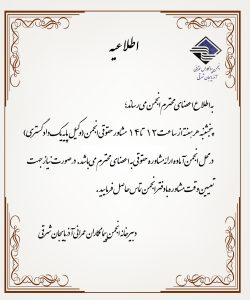 اطلاعیه
انجمن پیمانکاران عمرانی
آذربایجان شرقی
به اطلاع اعضای محترم انجمن می رساند؛
پنجشنبه هر هفته از ساعت ۱۲ تا ۱۴ مشاور حقوقی انجمن (وکیل پایه یک دادگستری)
در محل انجمن آماده ارائه مشاوره حقوقی به اعضای محترم می باشد. در صورت نیاز جهت
تعیین وقت مشاوره با دفتر انجمن تماس حاصل فرمایید.
دبیرخانه انجمن پیمانکاران عمرانی آذربایجان شرقی